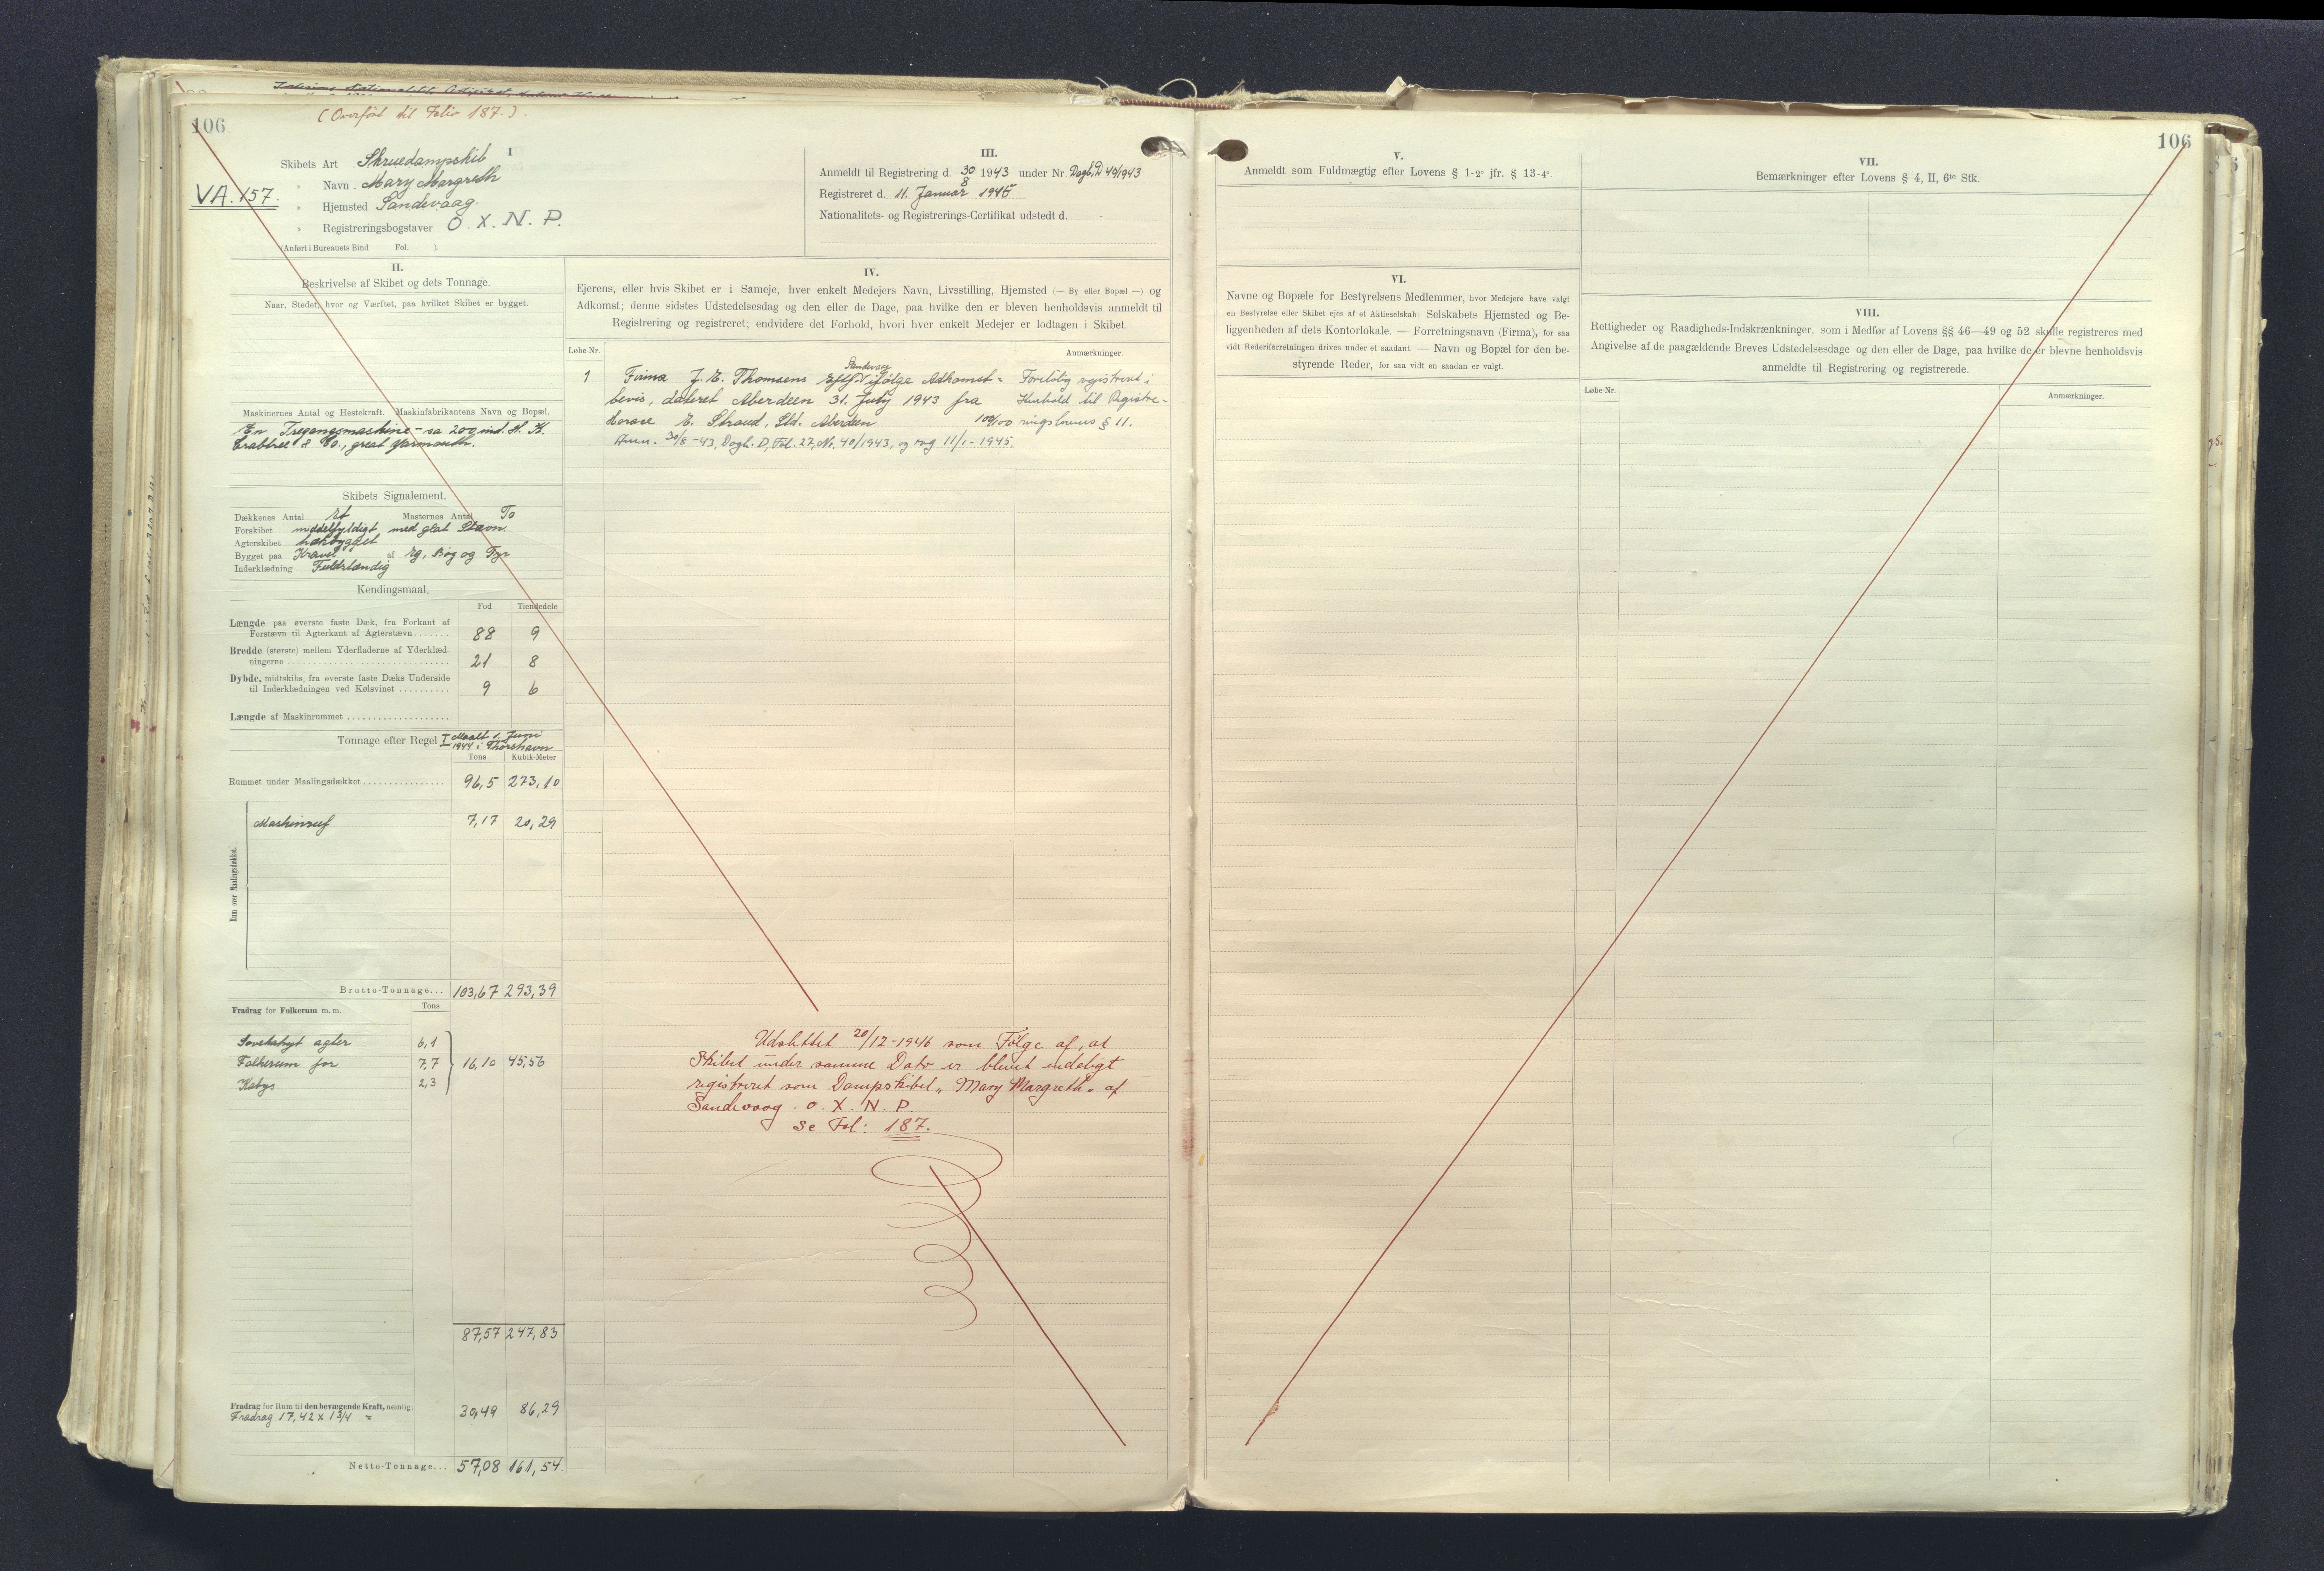 (Overført til Folio 187.)
106
VA.157.
I
Skibets Art Skruedampskib
" Navn Mary Margreth
" Hjemsted Sandevaag.
" Registreringsbogstaver O. X. N. P.
(Anført i Bureauets Bind Fol. ).
II.
Beskrivelse af Skibet og dets Tonnage.
Naar, Stedet, hvor og Værftet, paa hvilket Skibet er bygget.
Maskinernes Antal og Hestekraft. Maskinfabrikantens Navn og Bopæl.
En Tregangsmaskine - ca 200 ind. H. K.
Crabtree & Co., great Yarmouth.
Skibets Signalement.
Dækkenes Antal et Masternes Antal To
Forskibet middelfyldigt, med glat Stævn
Agterskibet hækbygget
Bygget paa Kravel af Eg, Bøg og Fyr
Inderklædning Fuldstændig
Kendingsmaal.
Fod Tiendedele
Længde paa øverste faste Dæk, fra Forkant af
Forstævn til Agterkant af Agterstævn....... 88 9
Bredde (største) mellem Yderfladerne af Yderklæd-
ningerne ............ 21 8
Dybde, midtskibs, fra øverste faste Dæks Underside
til Inderklædningen ved Kølsvinet .......... 9 6
Længde af Maskinrummet ....................
Tonnage efter Regel I Maalt 1. Juni
1944 i Thorshavn
Tons Kubik-Meter
Rummet under Maalingsdækket................ 96,5 273,10
Rum over Maalingsdækket.
Maskinruf 7,17 20,29
Brutto-Tonnage... 103,67 293,39
Fradrag for Folkerum m.m. Tons
agter 6,1
Folkerum for 7,7 16,10 45,56
Kabys 2,3
87,57 247,83
Fradrag for Rum til den bevægende Kraft, nemlig:
Fradrag 17,42 x 1 3/4 = 30,49 86,29
Netto-Tonnage... 57,08 161,54
III.
Anmeldt til Registrering d. 30/8 1943 under Nr. Dagb. D 40/1943
Registreret d. 11. Januar 1945
Nationalitets- og Registrerings-Certifikat udstedt d.
IV.
Ejerens, eller hvis Skibet er i Sameje, hver enkelt Medejers Navn, Livsstilling, Hjemsted (— By eller Bopæl —) og
Adkomst; denne sidstes Udstedelsesdag og den eller de Dage, paa hvilke den er bleven henholdsvis anmeldt til
Registrering og registreret; endvidere det Forhold, hvori hver enkelt Medejer er lodtagen i Skibet.
Løbe-Nr. Anmærkninger.
Sandevaag
1 Firma J. E. Thomsens Eftf. ifølge Adkomst- Foreløbig registreret i
bevis, dateret Aberdeen 31. July 1943 fra Henhold til Registre-
Horace E. Stroud, Ltd. Aberdeen 100/100 ringslovens § 11.
Anm. 30/8 -43, Dagb. D, Fol. 27, Nr. 40/1943, og reg 11/1 - 1945.
Udslettet 20/12 - 1946 som Følge af, at
Skibet under samme Dato er blevet endeligt
registreret som Dampskibet „Mary Margreth" af
Sandevaag. O. X. N. P.
Se Fol: 187.
106
V.
Anmeldt som Fuldmægtig efter Lovens § 1-2° jfr. § 13-4°.
VI.
Navne og Bopæle for Bestyrelsens Medlemmer, hvor Medejere have valgt
en Bestyrelse eller Skibet ejes af et Aktieselskab; Selskabets Hjemsted og Be-
liggenheden af dets Kontorlokale. — Forretningsnavn (Firma), for saa
vidt Rederiforretningen drives under et saadant. — Navn og Bopæl for den be-
styrende Reder, for saa vidt en saadan er valgt.
VII.
Bemærkninger efter Lovens § 4, II, 6te Stk.
VIII.
Rettigheder og Raadigheds-Indskrænkninger, som i Medfør af Lovens §§ 46—49 og 52 skulle registreres med
Angivelse af de paagældende Breves Udstedelsesdage og den eller de Dage, paa hvilke de er blevne henholdsvis
anmeldte til Registrering og registrerede.
Løbe-Nr. Anmærkninger.